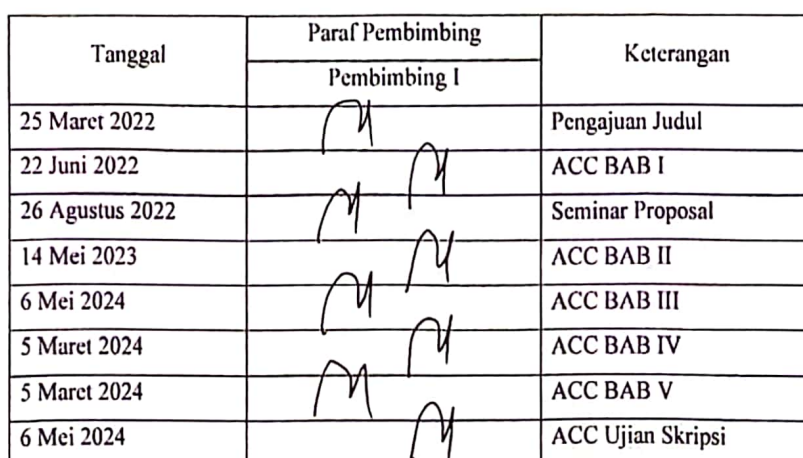 Tanggal Paraf Pembimbing Keterangan
Pembimbing I
25 Maret 2022 Pengajuan Judul
22 Juni 2022 ACC BAB I
26 Agustus 2022 Seminar Proposal
14 Mei 2023 ACC BAB II
6 Mei 2024 ACC BAB III
5 Maret 2024 ACC BAB IV
5 Maret 2024 ACC BAB V
6 Mei 2024 ACC Ujian Skripsi